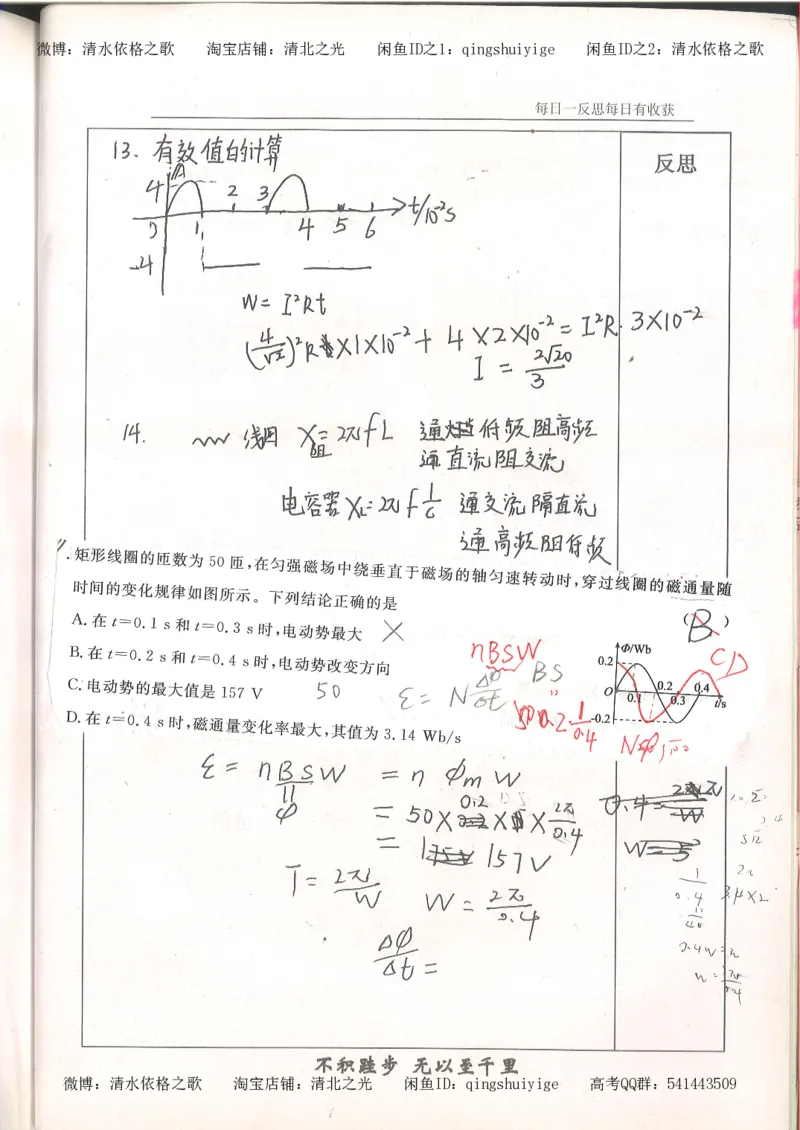 微博：清水依格之歌 淘宝店铺：清北之光 闲鱼ID之1：qingshuiyige 闲鱼ID之2：清水依格之歌
每日一反思每日有收获
13. 有效值的计算
反思
4 2 3
0 1 4 5 6 t/10⁻²s
-4
W = I²Rt
(4/√2)²R×1×10⁻² + 4×2×10⁻² = I²R·3×10⁻²
I = 2√20/3
14. 线圈 X阻=2πfL 通低频阻高频
通直流阻交流
电容器 XL=2πf 1/c 通交流隔直流
通高频阻低频
矩形线圈的匝数为50匝,在匀强磁场中绕垂直于磁场的轴匀速转动时,穿过线圈的磁通量随
时间的变化规律如图所示。下列结论正确的是 (B)
A.在t=0.1 s和t=0.3 s时,电动势最大 ×
B.在t=0.2 s和t=0.4 s时,电动势改变方向
C.电动势的最大值是157 V 50
D.在t=0.4 s时,磁通量变化率最大,其值为3.14 Wb/s
nBSW
BS
ε = N ΔΦ/Δt
CD
Φ/Wb
0.2
O 0.1 0.2 0.3 0.4 t/s
-0.2
ε = nBSW = n Φm W
Φ
= 50×0.2×2π/0.4
= 157V
T = 2π/W W = 2π/0.4
ΔΦ/Δt =
不积跬步 无以至千里
微博：清水依格之歌 淘宝店铺：清北之光 闲鱼ID：qingshuiyige 高考QQ群：541443509